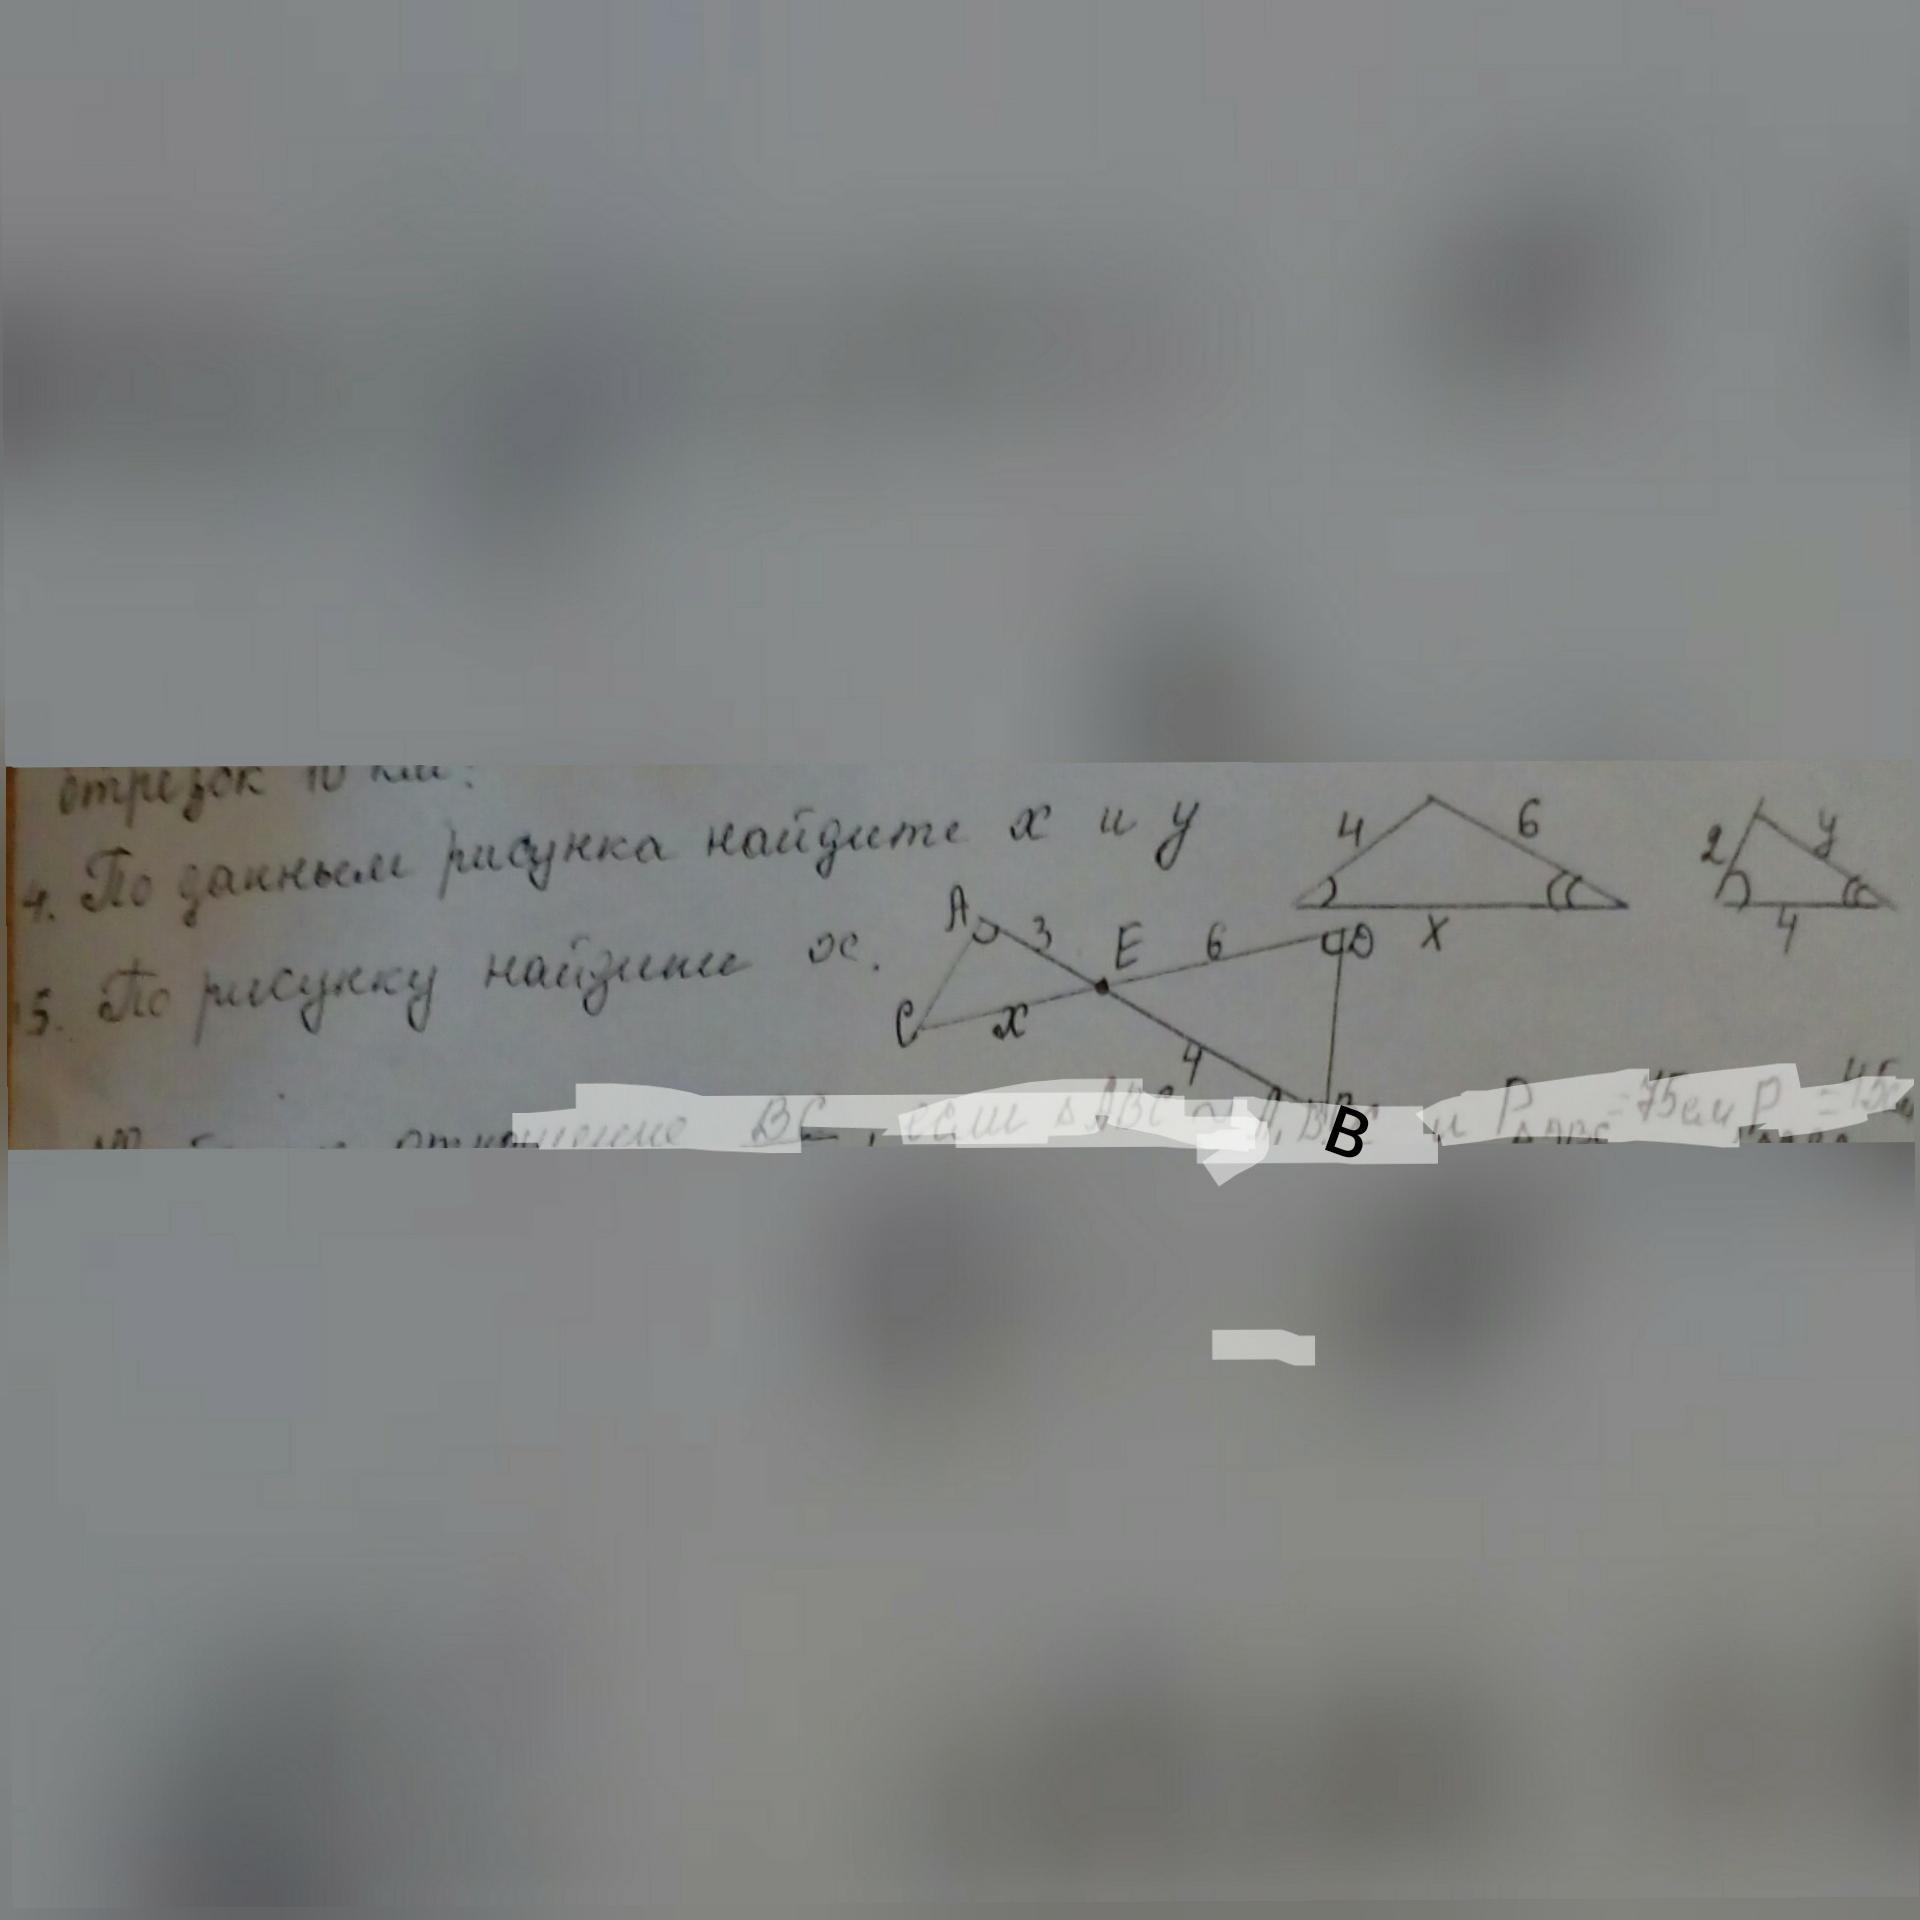 отрезок 10 км.
4. По данным рисунка найдите x и y
4 6 x
2 y 4
5. По рисунку найдите x.
A 3 E 6 D
C x 4 B
отношение BC, если ΔABC ~ A₁B и P ΔABC = 75 см P = 45